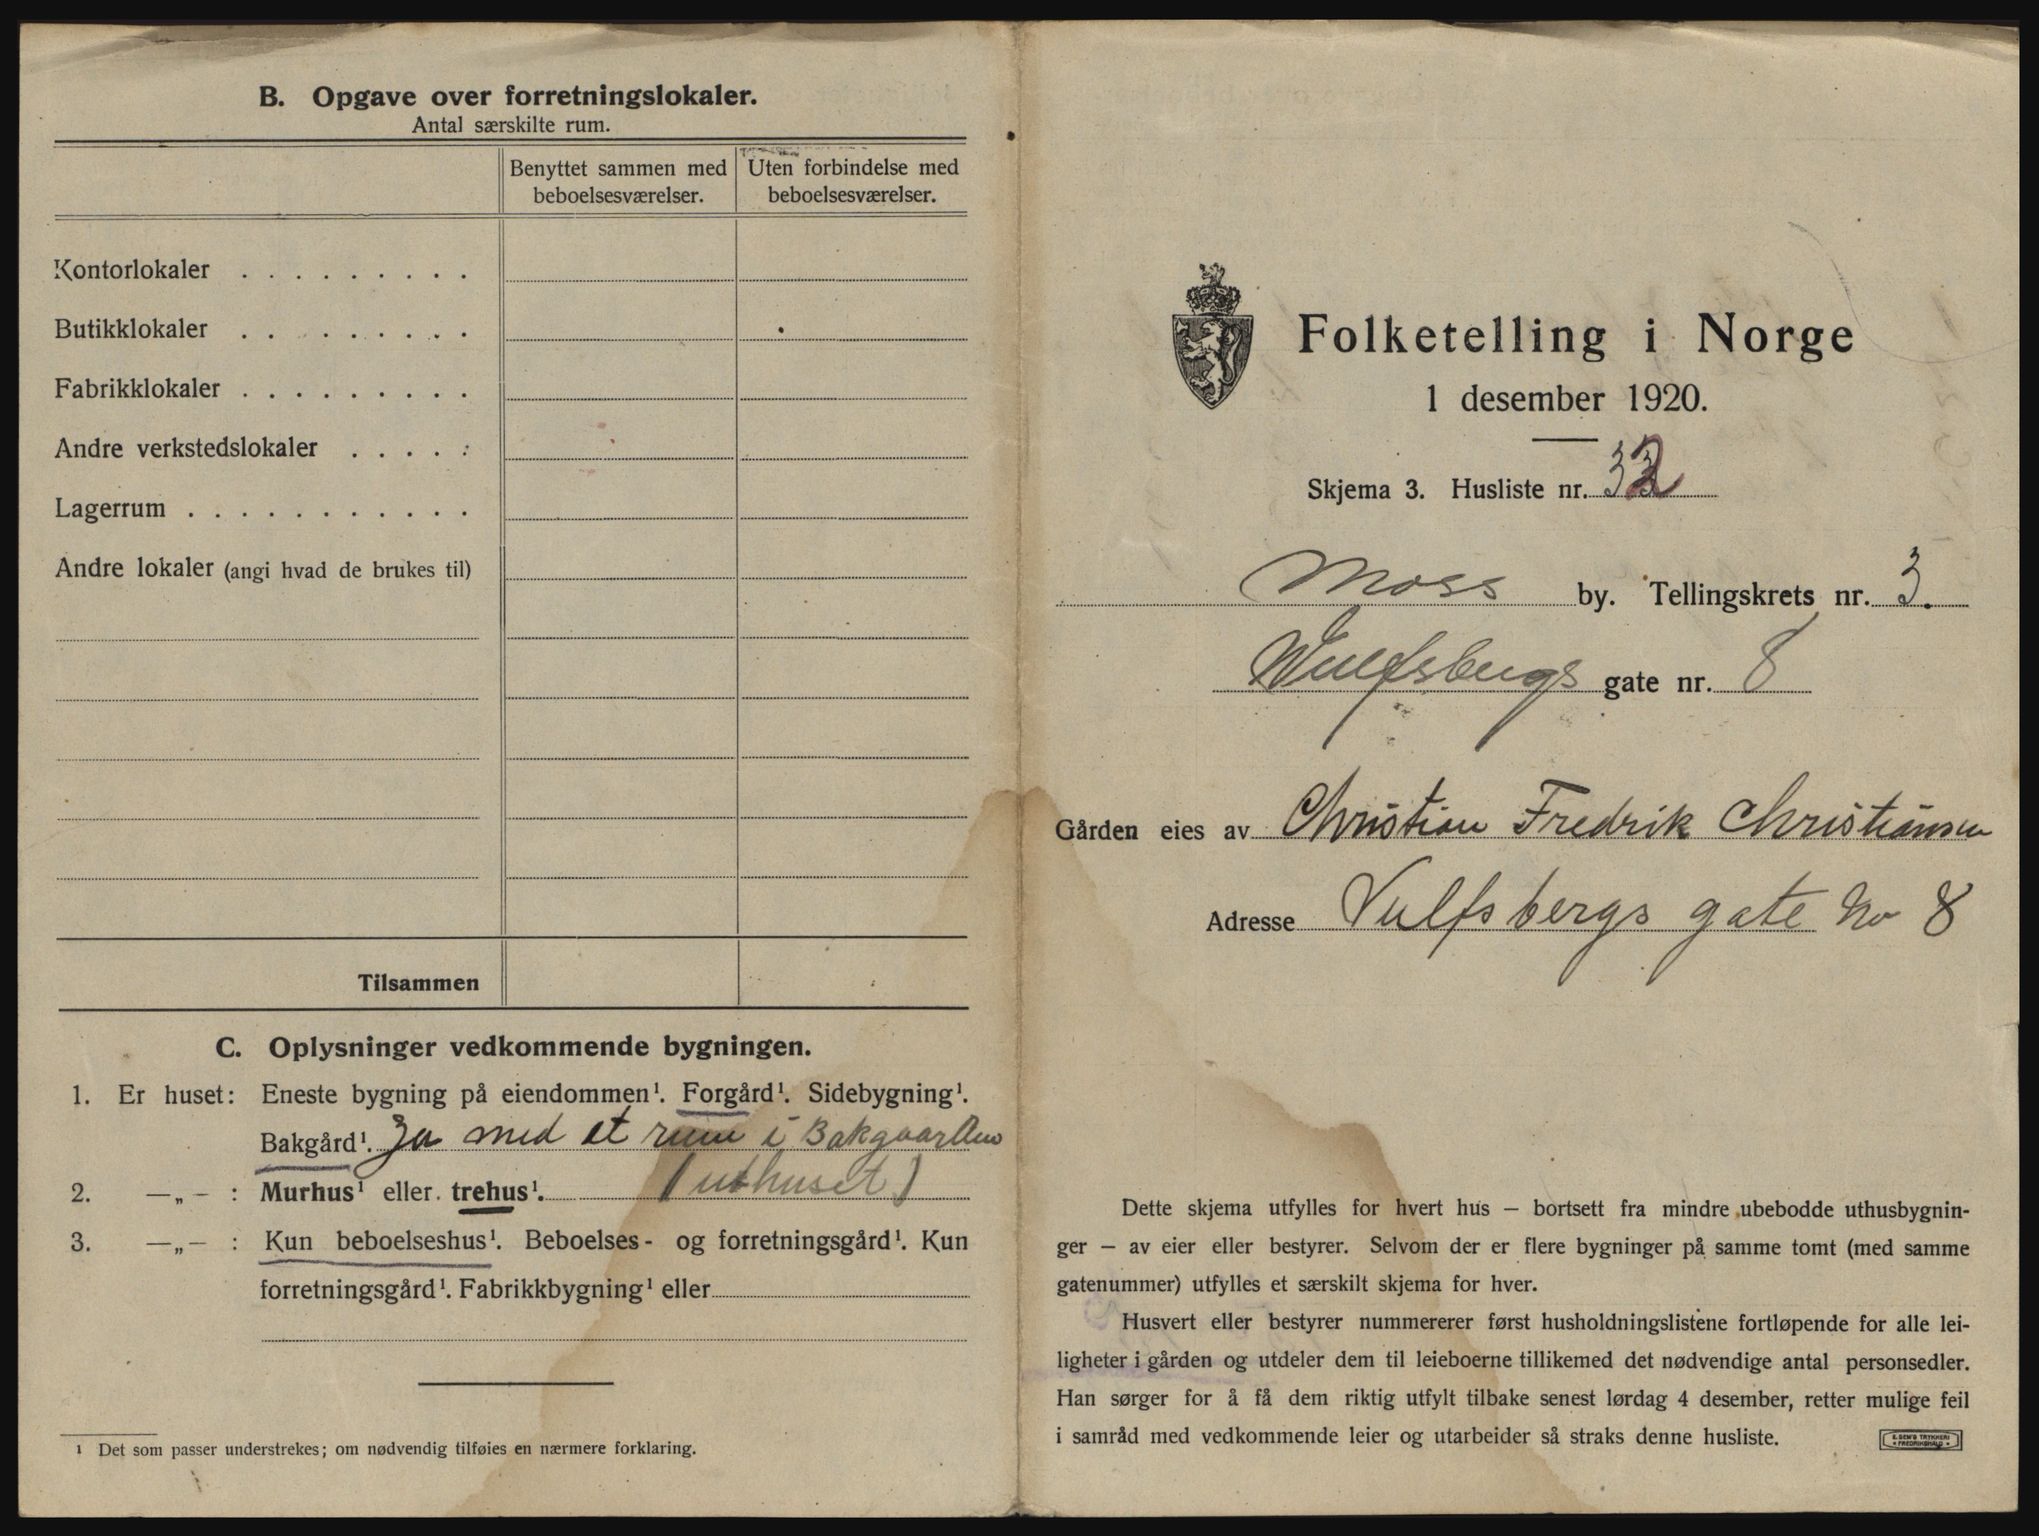 B. Opgave over forretningslokaler.
Antal særskilte rum.
Benyttet sammen med beboelsesværelser.
Uten forbindelse med beboelsesværelser.
Kontorlokaler . . . . . . . . .
Butikklokaler . . . . . . . . .
Fabrikklokaler . . . . . . . . .
Andre verkstedslokaler . . . . .
Lagerrum . . . . . . . . . . .
Andre lokaler (angi hvad de brukes til)
Tilsammen
C. Oplysninger vedkommende bygningen.
1. Er huset: Eneste bygning på eiendommen¹. Forgård¹. Sidebygning¹.
Bakgård¹. Ja med et rum i Bakgaarden
(uthuset)
2. —„— : Murhus¹ eller trehus¹.
3. —„— : Kun beboelseshus¹. Beboelses- og forretningsgård¹. Kun
forretningsgård¹. Fabrikkbygning¹ eller
¹ Det som passer understrekes; om nødvendig tilføies en nærmere forklaring.
Folketelling i Norge
1 desember 1920.
Skjema 3. Husliste nr. 32
Moss by. Tellingskrets nr. 3.
Wulfsbergs gate nr. 8
Gården eies av Christian Fredrik Christiansen
Adresse Vulfsbergs gate No 8
Dette skjema utfylles for hvert hus – bortsett fra mindre ubebodde uthusbygnin-
ger – av eier eller bestyrer. Selvom der er flere bygninger på samme tomt (med samme
gatenummer) utfylles et særskilt skjema for hver.
Husvert eller bestyrer nummererer først husholdningslistene fortløpende for alle lei-
ligheter i gården og utdeler dem til leieboerne tillikemed det nødvendige antal personsedler.
Han sørger for å få dem riktig utfylt tilbake senest lørdag 4 desember, retter mulige feil
i samråd med vedkommende leier og utarbeider så straks denne husliste.
E. SEM'S TRYKKERI
FREDRIKSHALD